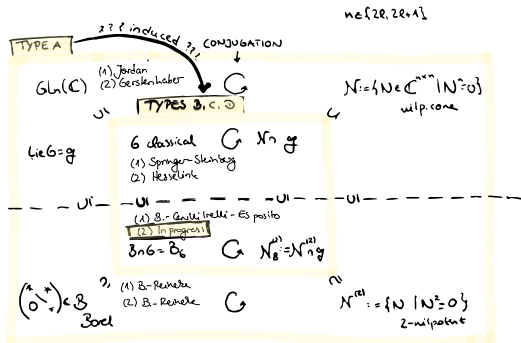 n∈{2l, 2l+1}
??? induced ???
TYPE A
CONJUGATION
GLn(ℂ) (1) Jordan
(2) Gerstenhaber
N:={N∈ℂⁿˣⁿ | Nⁿ=0}
nilp. cone
TYPES B, C, D
Lie G=g
G classical N∩g
(1) Springer-Steinberg
(2) Hesselink
(1) B.-Cerulli Irelli-Esposito
(2) In progress
B∩G=B_G N_B^(2):=N^(2)∩g
(1) B-Reineke
(2) B-Reineke
(* * 0 *) ⊂ B
Borel
N^(2):={N | N²=0}
2-nilpotent